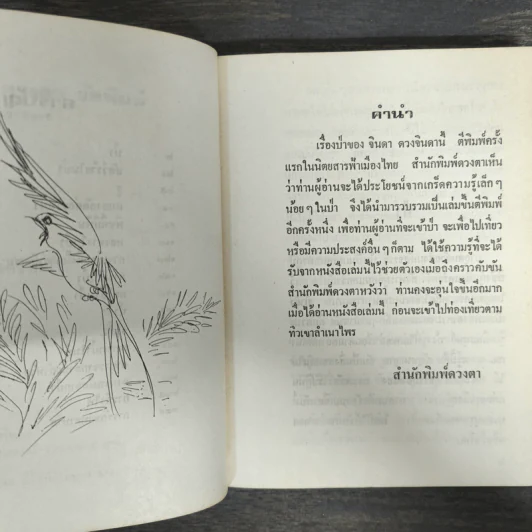 คำนำ
เรื่องป่าของ จินดา ดวงจินดานี้ ตีพิมพ์ครั้ง
แรกในนิตยสารฟ้าเมืองไทย สำนักพิมพ์ดวงตาเห็น
ว่าท่านผู้อ่านจะได้ประโยชน์จากเกร็ดความรู้เล็ก ๆ
น้อย ๆ ในป่า จึงได้นำมารวบรวมเป็นเล่มขึ้นตีพิมพ์
อีกครั้งหนึ่ง เพื่อท่านผู้อ่านที่จะเข้าป่า จะเพื่อไปเที่ยว
หรือมีความประสงค์อื่น ๆ ก็ตาม ได้ใช้ความรู้ที่จะได้
รับจากหนังสือเล่มนี้ไว้ช่วยตัวเองเมื่อถึงคราวคับขัน
สำนักพิมพ์ดวงตาหวังว่า ท่านคงจะอุ่นใจขึ้นอีกมาก
เมื่อได้อ่านหนังสือเล่มนี้ ก่อนจะเข้าไปท่องเที่ยวตาม
ทิวเขาลำเนาไพร
สำนักพิมพ์ดวงตา